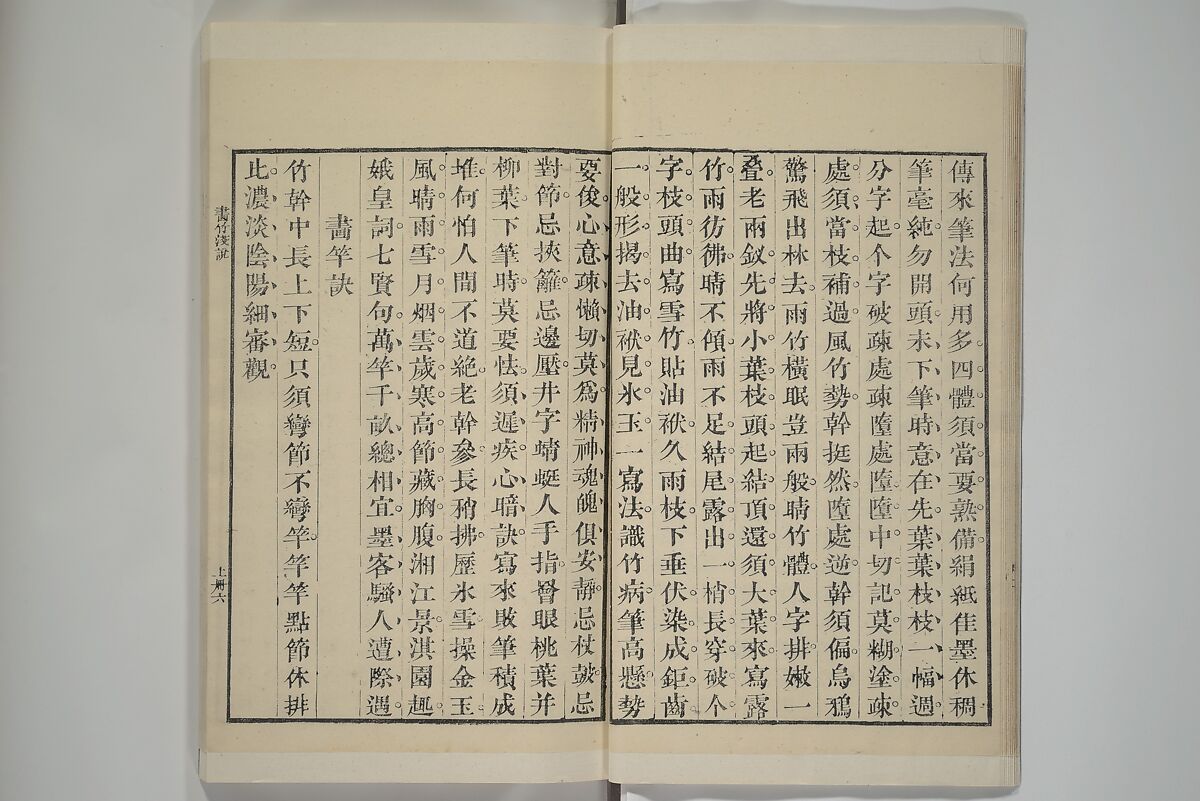 傳來筆法何用多四體須當要熟備絹紙佳墨休稠
筆毫純勿開頭未下筆時意在先葉葉枝枝一幅週
分字起个字破疎處疎墮處墮墮中切記莫糊塗疎
處須當枝補過風竹勢幹挺然墮處逆幹須偏烏鴉
驚飛出林去雨竹橫眠豈兩般晴竹體人字排嫩一
叠老兩釵先將小葉枝頭起結頂還須大葉來寫露
竹雨彷彿晴不傾雨不足結尾露出一梢長穿破个
字枝頭曲寫雪竹貼油袱久雨枝下垂伏染成鉅齒
一般形揭去油袱見氷玉一寫法識竹病筆高懸勢
要俊心意疎懶切莫爲精神魂魄俱安靜忌杖鼓忌
對節忌挾籬忌邊壓井字蜻蜓人手指㬱眼桃葉并
柳葉下筆時莫要怯須遲疾心暗訣寫來敗筆積成
堆何怕人間不道絶老幹參長稍拂歷氷雪操金玉
風晴雨雪月烟雲歲寒高節藏胸腹湘江景淇園趣
娥皇詞七賢句萬竿千畝總相宜墨客騷人遭際遇
畵竿訣
竹幹中長上下短只須彎節不彎竿竿竿點節休排
比濃淡陰陽細審觀
畵竹淺說
上冊六